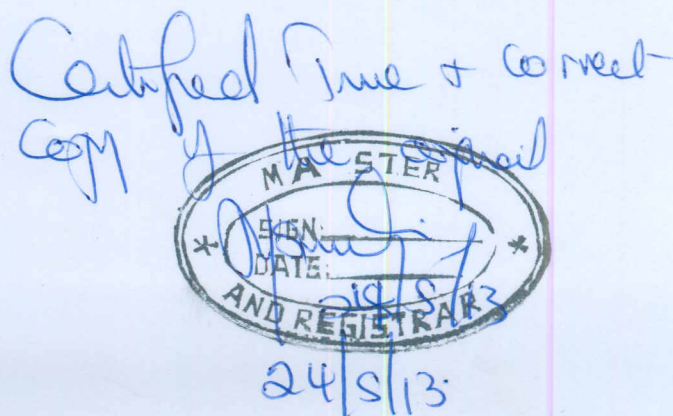 Certified True + correct
Copy of the original
MASTER
SIGN:
DATE:
AND REGISTRAR
24/5/13